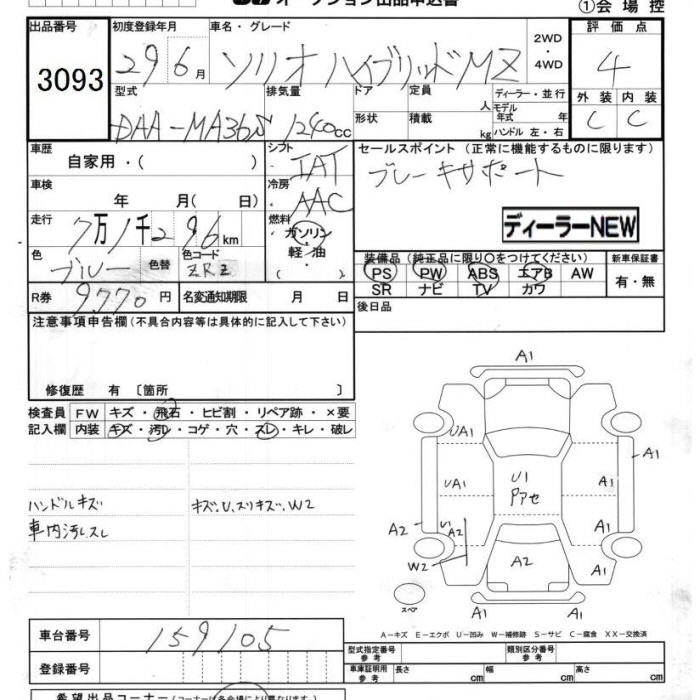 オークション出品申込書
①会場控
出品番号 3093
初度登録年月 29 6月
車名・グレード ソリオ ハイブリッドMZ
2WD・4WD
評価点 4
外装 C 内装 C
型式 DAA-MA36S
排気量 1240cc
ドア 形状
定員 人 積載 kg
ディーラー・並行
モデル年式 年
ハンドル 左・右
車歴 自家用・( )
シフト IAT
セールスポイント(正常に機能するものに限ります)
ブレーキサポート
車検 年 月( 日)
冷房 AAC
ディーラーNEW
走行 7万1千296km
燃料 ガソリン・軽油・( )
色 ブルー 色替
色コード ZRZ
装備品(純正品に限り〇をつけてください) 新車保証書
PS PW ABS エアB AW 有・無
SR ナビ TV カワ
R券 9,770円
名変通知期限 月 日
後日品
注意事項申告欄(不具合内容等は具体的に記入して下さい)
修復歴 有〔箇所 〕
検査員 FW キズ・飛石・ヒビ割・リペア跡・×要
記入欄 内装 キズ・汚レ・コゲ・穴・スレ・キレ・破レ
ハンドルキズ
車内汚レスレ
キズ、U、スリキズ、W2
A1
UA1 A1
A1
UA1 U1 A1
アアセ
A2 U1 A2 A1
W2 A2 A1
スペア
A1 A1
A-キズ E-エクボ U-凹み W-補修跡 S-サビ C-腐食 XX-交換済
車台番号 159105
型式指定番号 参考
類別区分番号 参考
登録番号
車庫証明用 参考 長さ cm 幅 cm 高さ cm
希望出品コーナー(コーナーは各会場により異なります)